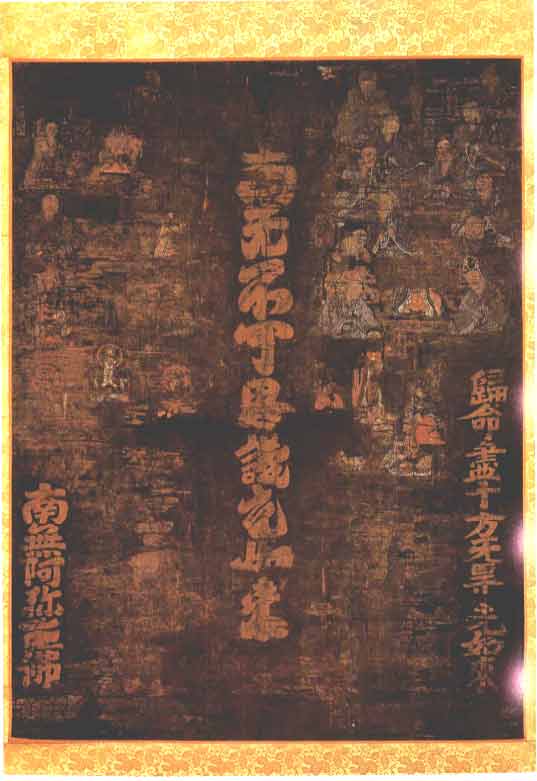 歸命盡十方无㝵光如来
南无不可思議光如来
南無阿弥陀佛